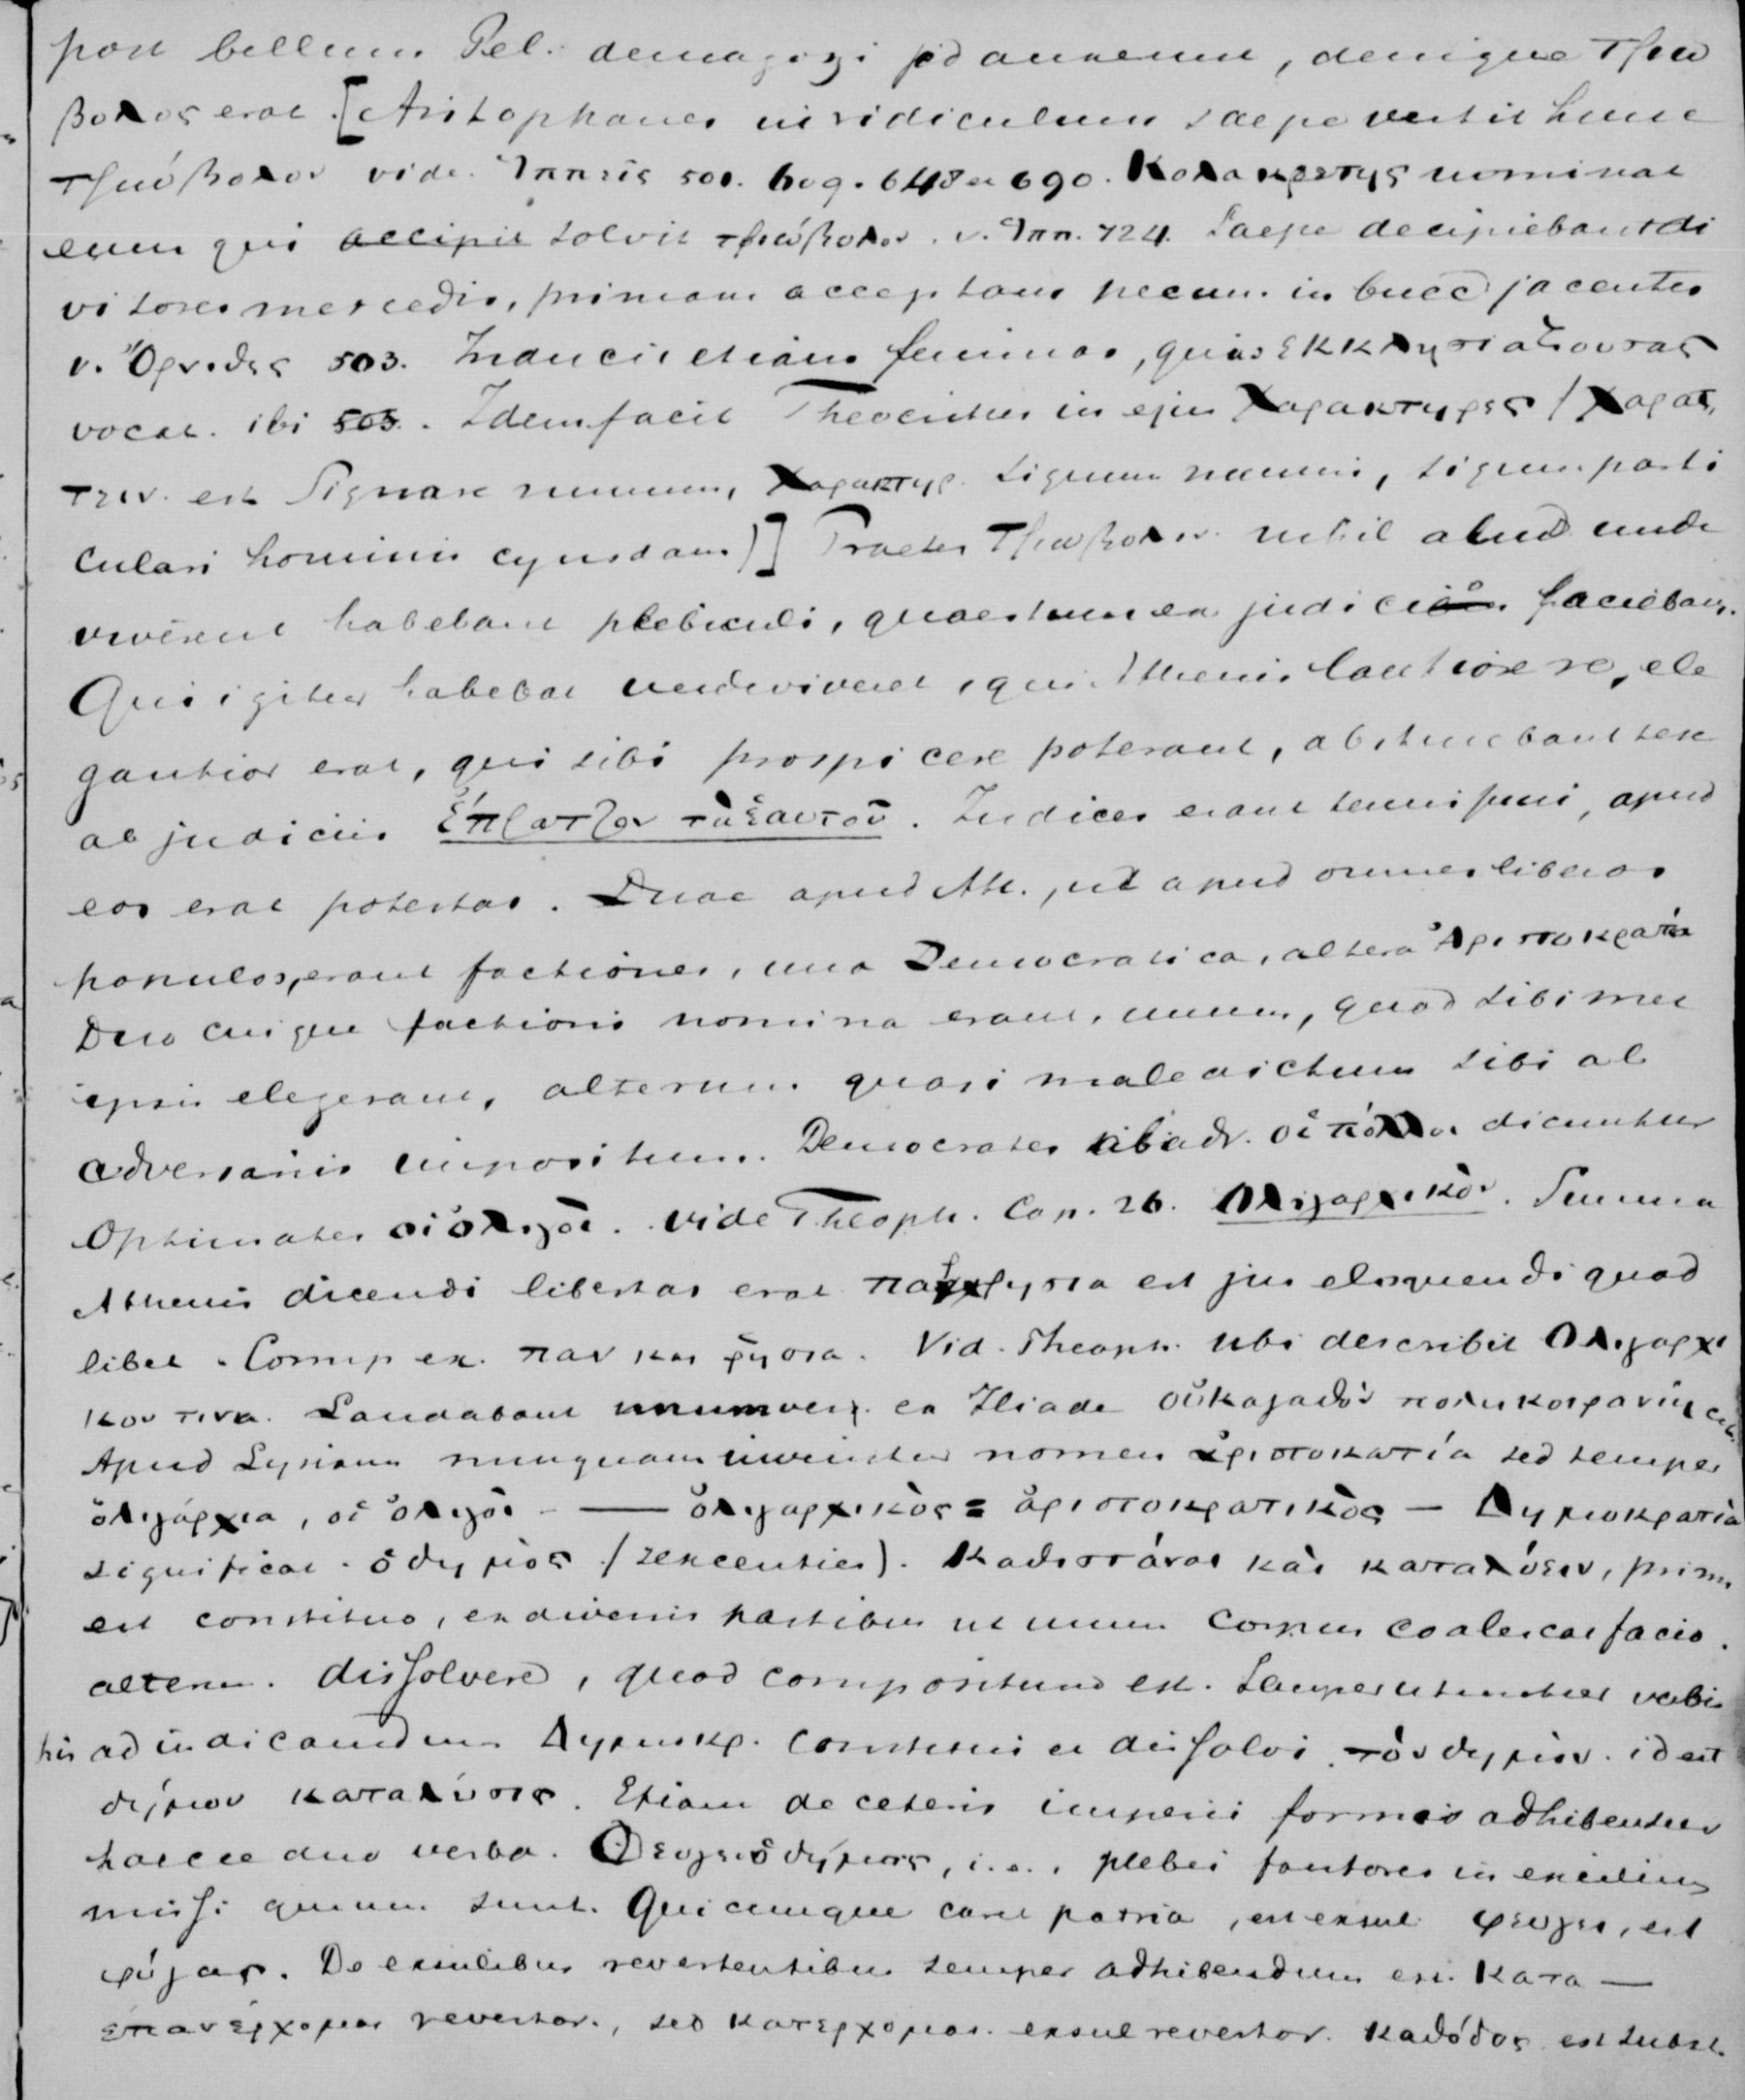 post bellum Pel. demagogi id auxerunt, denique τριω
βολος erat. [Aristophanes in ridiculum saepe vertit hunc
τριώβολον vide Ἱππεῖς 501. 648 et 690. Κολακρετης nominat
eum qui accipit solvit τριώβολον. v. Ἱππ. 724. Saepe decipiebant di
visores mercedis, primam acceptam pecun. in bucca jacentes
v. Ὄρνιθες 503. Inducit etiam feminas, quas εκκλησιαζουσας
vocat. ibi 503. Idem facit Theocritus in ejus Χαρακτηρες (χαρατ
τειν est Signare nummum, χαρακτηρ signum nummi, signum parti
culari hominis cujusdam)] Praeter τριωβολον nihil aliud unde
viverent habebant plebiculi, quaestum ex judicio faciebant.
Qui igitur habebat unde viveret, qui Athenis lautiore re, ele
gantior erat, qui sibi prospicere poterant, abstinebant sese
ab judiciis ἔπραττον τὰ ἑαυτοῦ. Judices erant tenuissimi, apud
eos erat potestas. Duae apud Ath., ut apud omnes liberos
populos, erant factiones, una Democratica, altera Ἀριστοκρατία
Duo cuique factionis nomina erant, unum, quod sibi met
ipsis elegerant, alterum quasi maledictum sibi ab
adversariis impositum. Democrates ab adv. οἱ πόλλοι dicuntur
Optimates οἱ ὀλιγοὶ. vide Theoph. Cap. 26. Ολιγαρχικὸν. Summa
Athenis dicendi libertas erat παρρησια est jus eloquendi quod
libet. Comp ex. παν και ρησια. Vid. Theoph. ubi describit Ολιγαρχι
κον τινα. Laudabant unum vers. ex Iliade οὐκ αγαθὸν πολυκοιρανίη cet.
Apud Lysiam nunquam invenitur nomen ἀριστοκατία sed semper
ὀλιγάρχια, οἱ ὀλιγοὶ — ὀλιγαρχικὸς = ἀριστοκρατικὸς — Δημοκρατία
significat ὁ δημὸς (sexcenties). Καθιστάναι καὶ καταλύειν, prim.
est constituo, ex diversis partibus ut unum corpus coalescat facio.
alterum dissolvere, quod compositum est. Semper utuntur verbis
his ad indicandum Δημοκρ. constitui et dissolvi τὸν δημὸν id est
δήμου καταλύσις. Etiam de ceteris imperii formis adhibentur
haecce duo verba. Φευγει ὁ δήμος, i.e., plebei fautores in exilium
missi quum sunt. Quicumque caret patria, est exsul φευγει, est
φύγας. De exulibus revertentibus semper adhibendum est κατα —
ἐπανέρχομαι revertor, sed κατερχομαι exsul revertor. καθόδος est subst.